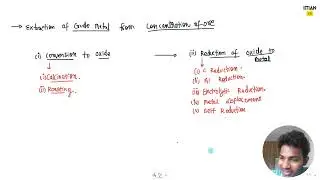 IITIAN
→ Extraction of Crude Metal from Concentration of ore
(i) Conversion to oxide
(i) Calcination.
(ii) Roasting.
(ii) Reduction of oxide to Metal
(i) C Reduction.
(iii) Electrolytic Reduction.
(iv) Metal displacement
(v) Self Reduction